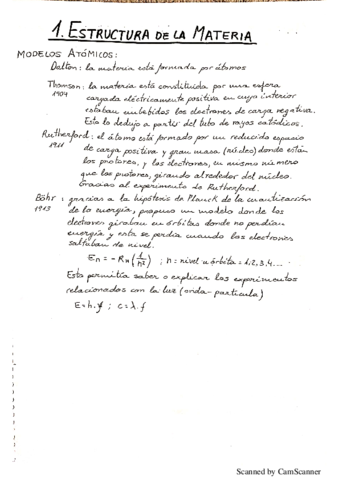 1. ESTRUCTURA DE LA MATERIA
MODELOS ATÓMICOS:
Dalton: la materia está formada por átomos
Thomson: la materia está constituida por una esfera
1904 cargada eléctricamente positiva en cuyo interior
estaban embebidos los electrones de carga negativa.
Esto lo dedujo a partir del tubo de rayos catódicos.
Rutherford: el átomo está formado por un reducido espacio
1911 de carga positiva y gran masa (núcleo) donde están
los protones, y los electrones, en mismo número
que los protones, girando alrededor del núcleo.
Gracias al experimento de Rutherford.
Böhr: gracias a la hipótesis de Planck de la cuantización
1913 de la energía, propuso un modelo donde los
electrones giraban en órbitas donde no perdían
energía y esta se perdía cuando los electrones
saltaban de nivel.
En = - RH (1/n²) ; n = nivel u órbita = 1, 2, 3, 4...
Esto permitía saber o explicar los experimentos
relacionados con la luz (onda-partícula)
E = h · f ; c = λ · f
Scanned by CamScanner